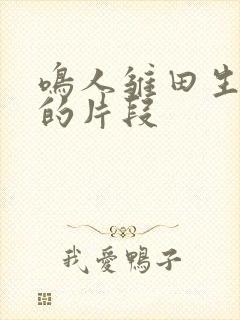 鳴人雛田生
的片段
我愛鴨子